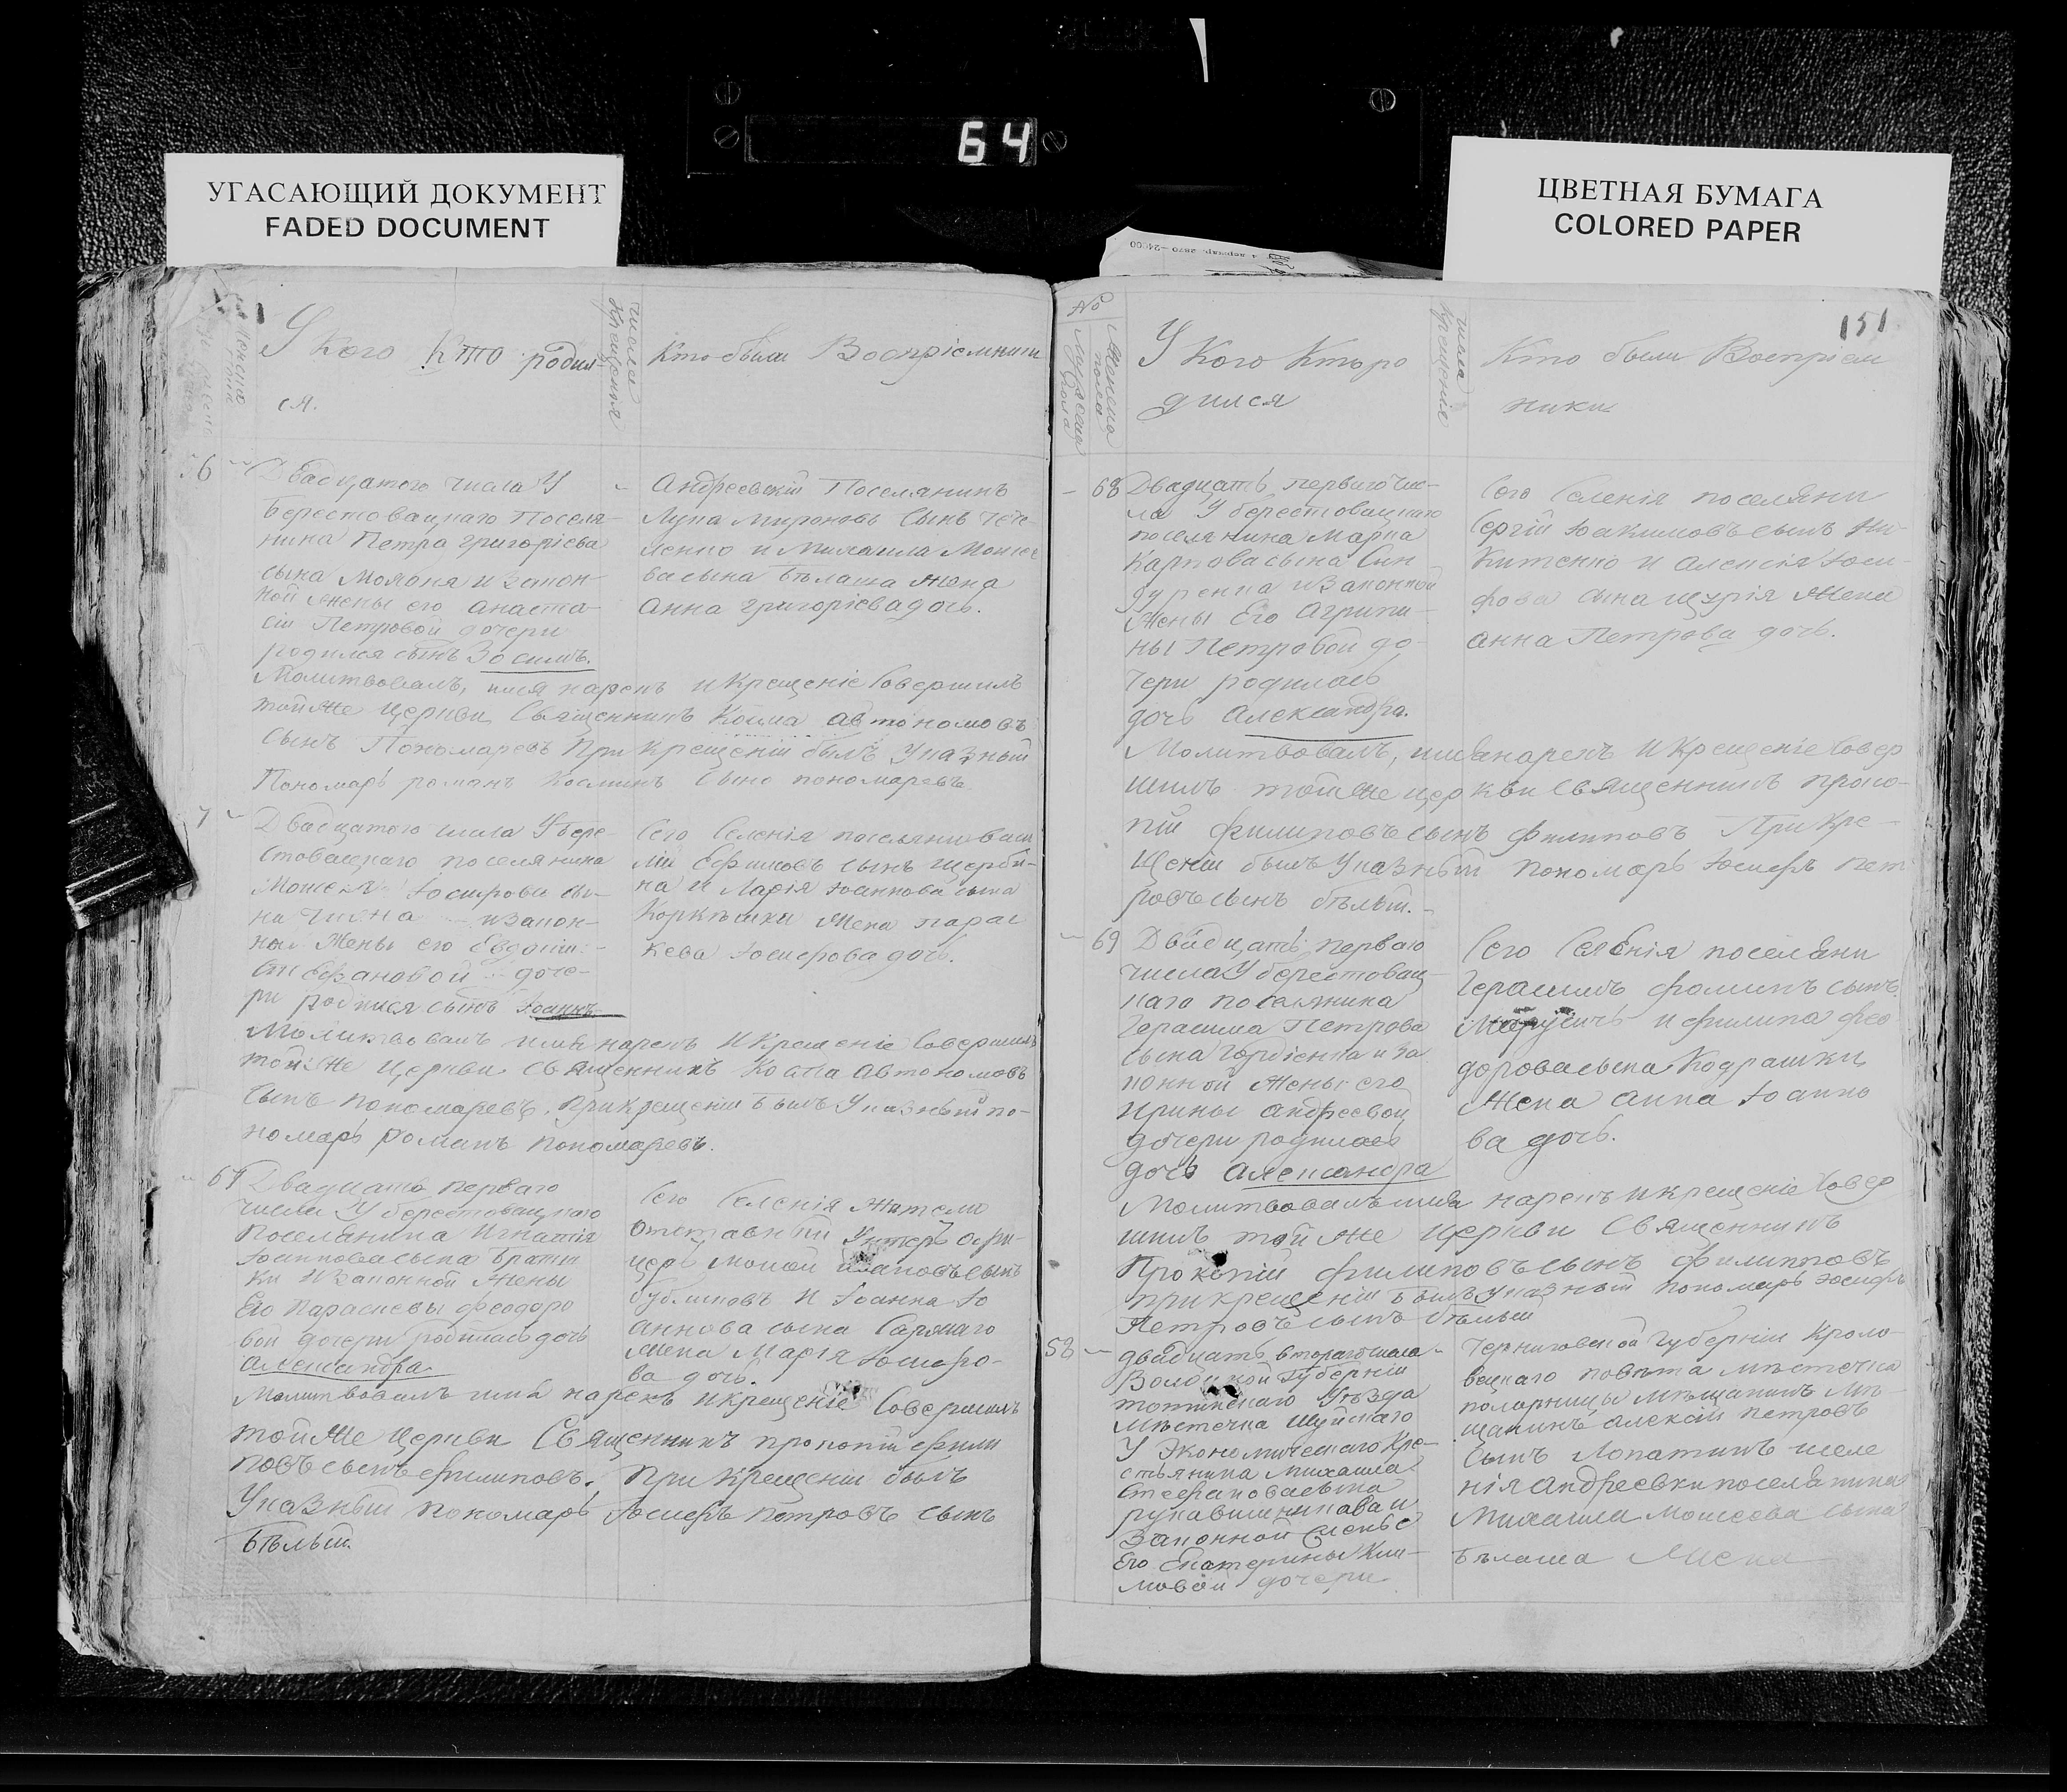 64
УГАСАЮЩИЙ ДОКУМЕНТ
FADED DOCUMENT
ЦВЕТНАЯ БУМАГА
COLORED PAPER
У кого кто родил
ся.
числа
крещенія
Кто были Воспріемники
6
Двадцатого числа У
берестовацкаго Поселя-
нина Петра григоріева
сына и закон-
ной жены его анаста-
сіи Петровой дочери
родился сынъ Зосимъ.
Андреевскій Поселянинъ
Лука мироновъ сынъ
и михаила
ва сына бѣлаша жена
Анна григоріева дочь.
Молитвовалъ, имя нарекъ и крещеніе совершилъ
той же церкви Священникъ Косма автономовъ
сынъ Пономаревъ При крещеніи былъ Указный
Пономарь романъ Косминъ сынъ пономаревъ.
7
Двадцатого числа У бере-
стовацкаго поселянина
сы-
на закон-
ной жены его Евдокіи
стефановой доче-
ри родился сынъ Іоаннъ.
Сего селенія поселянинъ васи
лій Ефимовъ сынъ щерби-
на и Іоаннова сына
жена парас
кева Іосифова дочь.
Молитвовалъ имя нарекъ и крещеніе совершилъ
той же церкви священникъ Косма автономовъ
сынъ пономаревъ. При крещеніи былъ Указный по-
номарь романъ пономаревъ.
67
Двадцать перваго
числа У берестовацкаго
поселянина Игнатія
Іоаннова сына
ки и законной жены
Его Параскевы феодоро
вой дочери родилась дочь
александра.
Сего селенія жители
отставный Унтеръ офи-
церъ сынъ
и Іоанна Іо
аннова сына
жена Марія Іосифо-
ва дочь.
Молитвовалъ имя нарекъ и крещеніе совершилъ
той же церкви Священникъ прокопій фили
повъ сынъ филиповъ. При крещеніи былъ
Указный пономарь Іосифъ петровъ сынъ
бѣлый.
151
№
мужеска
пола
женска
пола
У кого кто ро
дился
числа
крещенія
Кто были Воспріем
ники
68
Двадцать перваго чис-
ла У берестовацкаго
поселянина марка
Карпова сына Син
гуренка и законной
жены Его Агрипи-
ны Петровой до-
чери родилась
дочь александра.
Сего селенія поселяни
Сергій Іоакимовъ сынъ Ни-
китенко и алексія Іоси-
фова сына жена
анна Петрова дочь.
Молитвовалъ, имя нарекъ и крещеніе совер
шилъ той же церкви священникъ проко-
пій филиповъ сынъ филиповъ При кре-
щеніи былъ Указный пономарь Іосифъ пет
ровъ сынъ бѣлый.
69
Двадцать перваго
числа У берестовац-
каго поселянина
Герасима Петрова
сына гордіенка и за
конной жены его
ирины андреевой
дочери родилась
дочь александра
Сего селенія поселяни
Герасимъ фоминъ сынъ
и филипа фео
дорова сына Кодрашки
жена анна Іоанно
ва дочь.
Молитвовалъ имя нарекъ и крещеніе совер
шилъ той же церкви Священникъ
Прокопій филиповъ сынъ филиповъ
при крещеніи былъ указный пономарь Іосифъ
Петровъ сынъ бѣлый
58
двадцать втораго числа
Вологской губерніи
тотемскаго Уѣзда
мѣстечка шуйскаго
У Экономическаго кре-
стьянина михаила
стефанова сына
рукавишникова и
законной жены
Его Екатерины Кли-
мовой дочери
Черниговской губерніи Кроле-
вецкаго повѣта мѣстечка
мѣщанинъ мѣ-
щанинъ алексій петровъ
сынъ Лопатинъ и селе
нія андреевки поселянина
михаила моисеева сына
бѣлаша жена